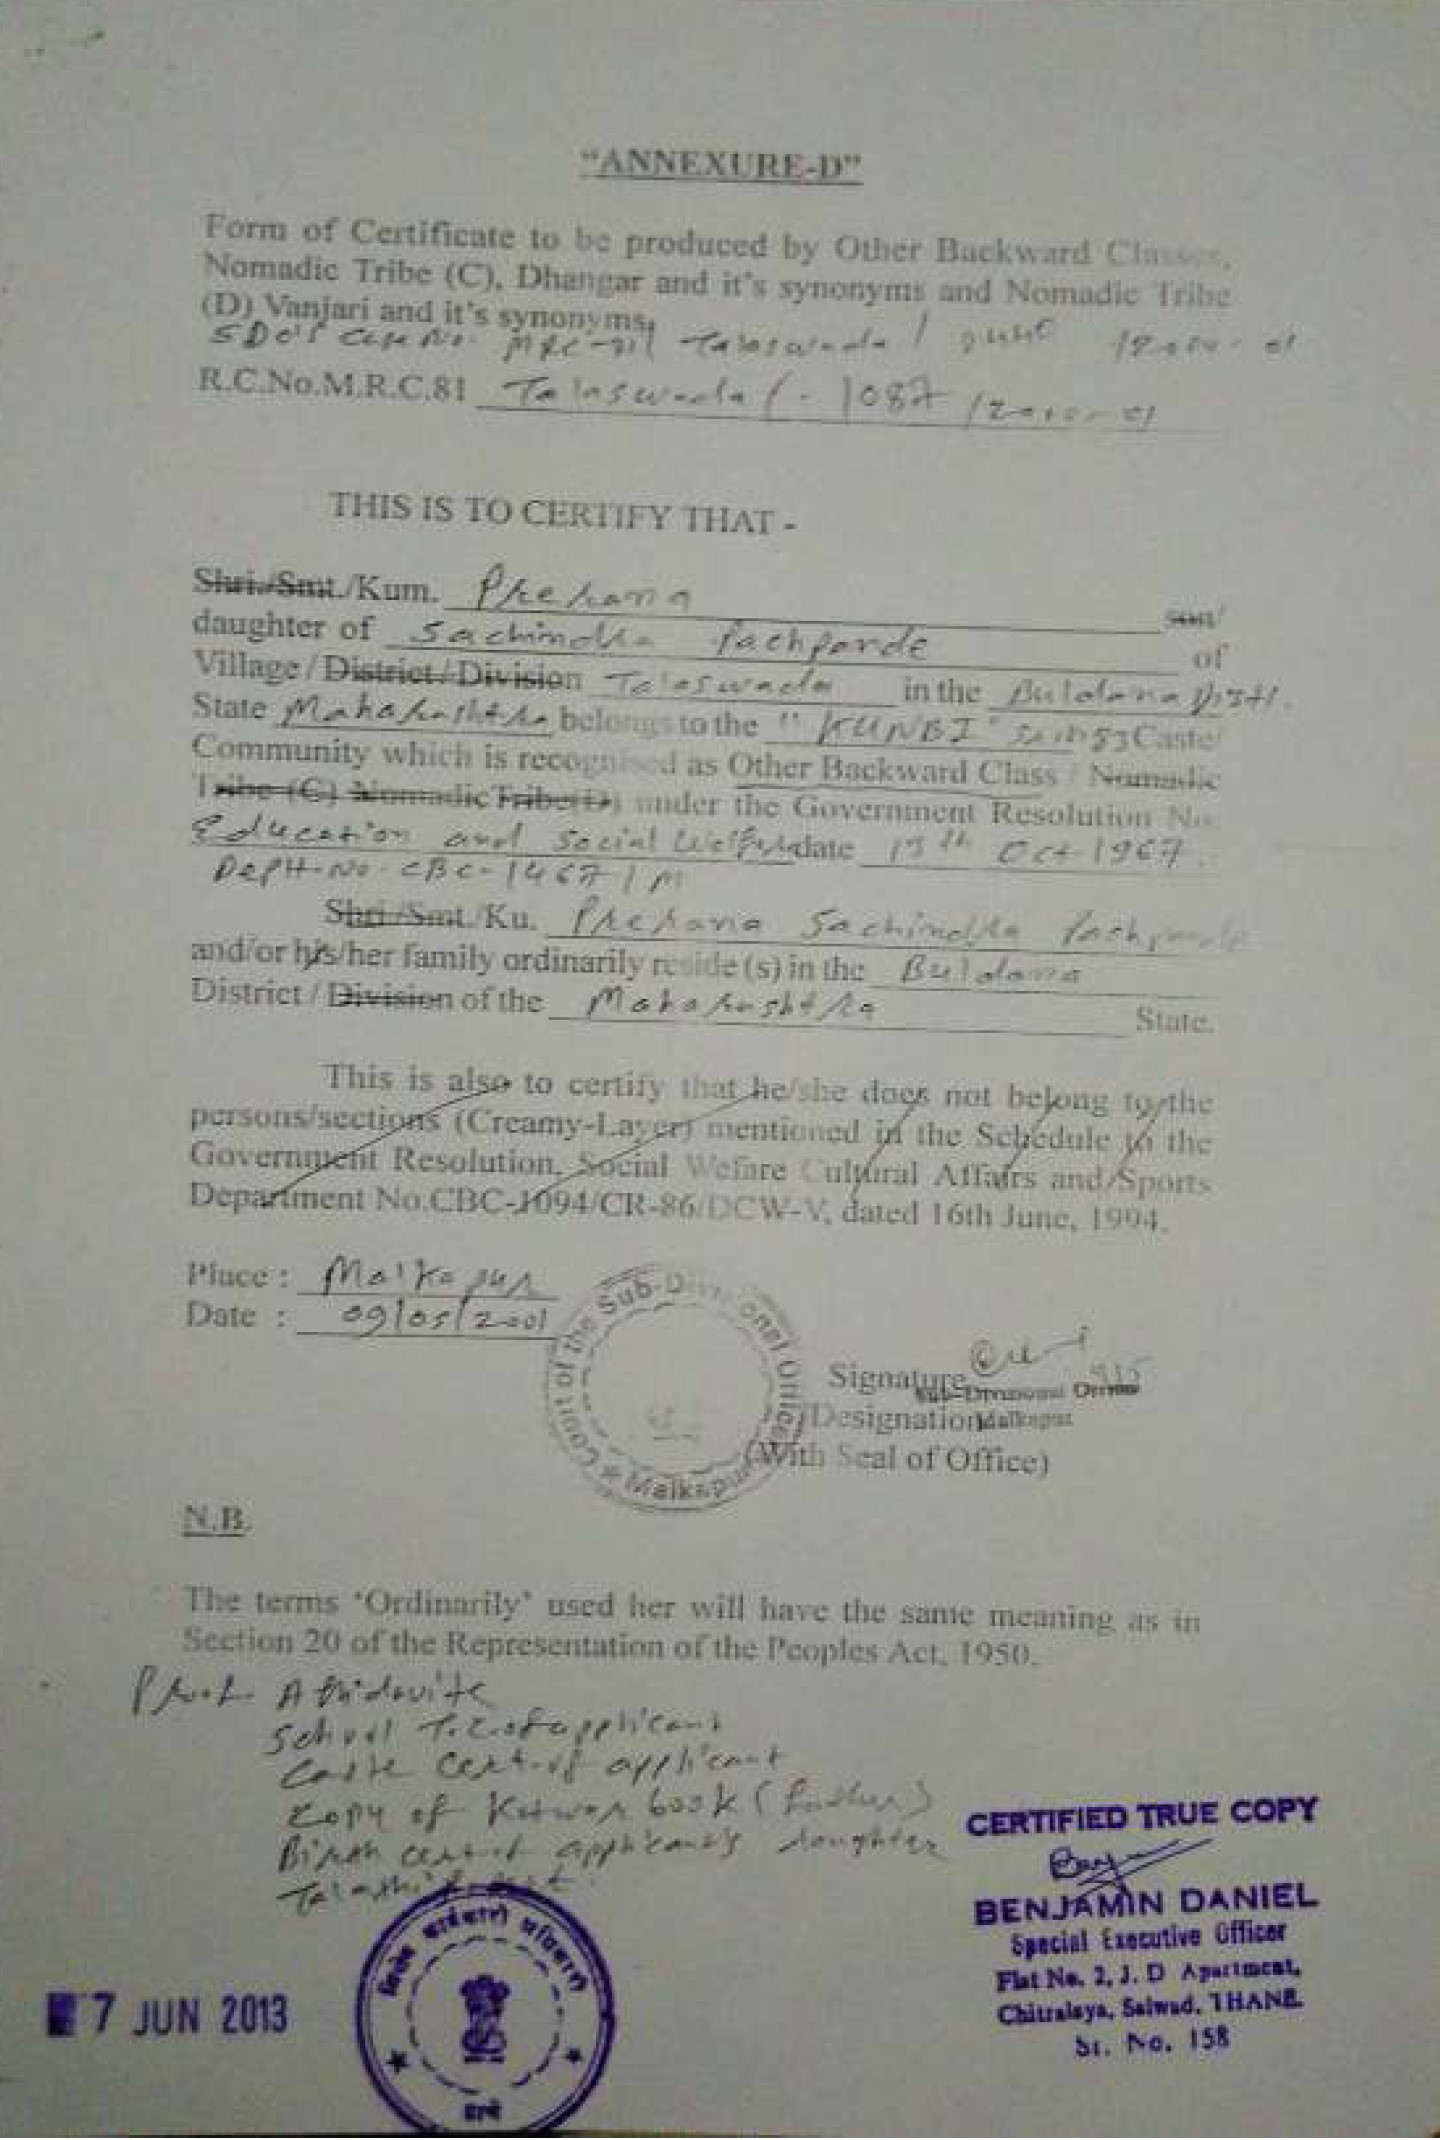 "ANNEXURE-D"
Form of Certificate to be produced by Other Backward Classes,
Nomadic Tribe (C), Dhangar and it's synonyms and Nomadic Tribe
(D) Vanjari and it's synonyms.
SDO's Case No. MRC-81 Talaswada / /2000-01
R.C.No.M.R.C.81 Talaswada / 1087 /2000-01
THIS IS TO CERTIFY THAT -
Shri./Smt./Kum. Prerana son/
daughter of Sachindra Pachparde of
Village / District / Division Talaswada in the Buldana Distt.
State Maharashtra belongs to the "KUNBI" 83 Caste/
Community which is recognised as Other Backward Class / Nomadic
Tribe (C) Nomadic Tribe(D) under the Government Resolution No.
Education and Social Welfare date 13th Oct 1967.
Deptt. No. CBC-1467/M
Shri /Smt./Ku. Prerana Sachindra Pachparde
and/or his/her family ordinarily reside (s) in the Buldana
District / Division of the Maharashtra State.
This is also to certify that he/she does not belong to the
persons/sections (Creamy-Layer) mentioned in the Schedule to the
Government Resolution, Social Welfare Cultural Affairs and Sports
Department No.CBC-1094/CR-86/DCW-V, dated 16th June, 1994.
Place : Malkapur
Date : 09/05/2001
Court of the Sub-Divisional Officer
★ Malkapur
Signature
Sub-Divisional Officer
/Designation Malkapur
(With Seal of Office)
N.B.
The terms 'Ordinarily' used her will have the same meaning as in
Section 20 of the Representation of the Peoples Act, 1950.
Proof - Affidavite
School T.C. of applicant
Caste Cert. of applicant
Copy of Kotwar book (father)
Birth cert. of applicant's daughter
CERTIFIED TRUE COPY
BENJAMIN DANIEL
Special Executive Officer
Flat No. 2, J. D Apartment,
Chitralaya, Saiwad, THANE
Sr. No. 158
7 JUN 2013
विशेष कार्यकारी अधिकारी
ठाणे